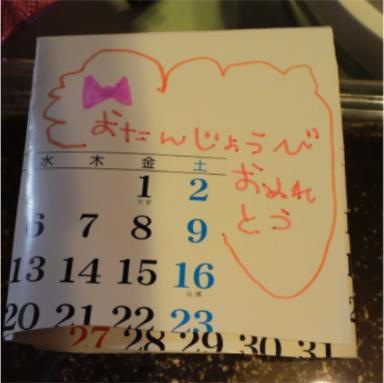 おたんじょうび
おめれ
とう
水 木 金 土
1 2
6 7 8 9
13 14 15 16
仏滅
20 21 22 23
27 28 29 30 31